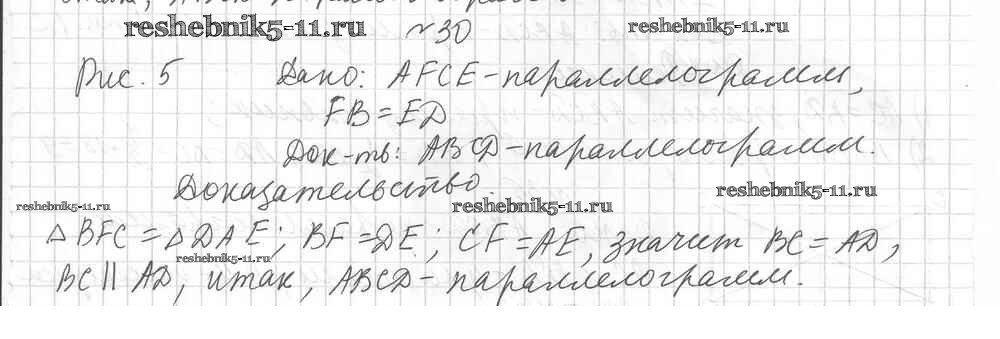 reshebnik5-11.ru №30 reshebnik5-11.ru
Рис. 5 Дано: AFCE-параллелограмм,
FB=ED
Док-ть: ABCD-параллелограмм.
Доказательство. reshebnik5-11.ru
reshebnik5-11.ru reshebnik5-11.ru
△BFC=△DAE; BF=DE; CF=AE, значит BC=AD,
reshebnik5-11.ru
BC∥AD, итак, ABCD-параллелограмм.